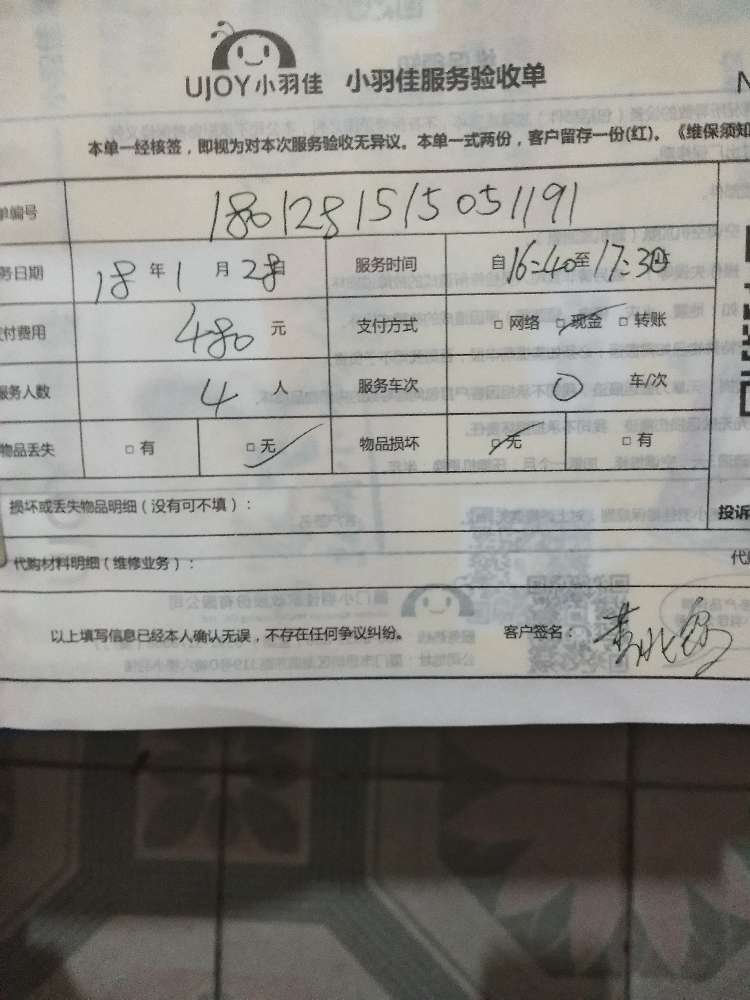 UJOY小羽佳 小羽佳服务验收单
本单一经核签，即视为对本次服务验收无异议。本单一式两份，客户留存一份(红)。《维保须知
单编号 1801281515051191
务日期 18 年 1 月 28 日 服务时间 自16:40至17:30
付费用 480 元 支付方式 □ 网络 □ 现金 □ 转账
服务人数 4 人 服务车次 0 车/次
物品丢失 □ 有 □ 无 物品损坏 □ 无 □ 有
损坏或丢失物品明细（没有可不填）：
投诉
代购材料明细（维修业务）：
以上填写信息已经本人确认无误，不存在任何争议纠纷。 客户签名：